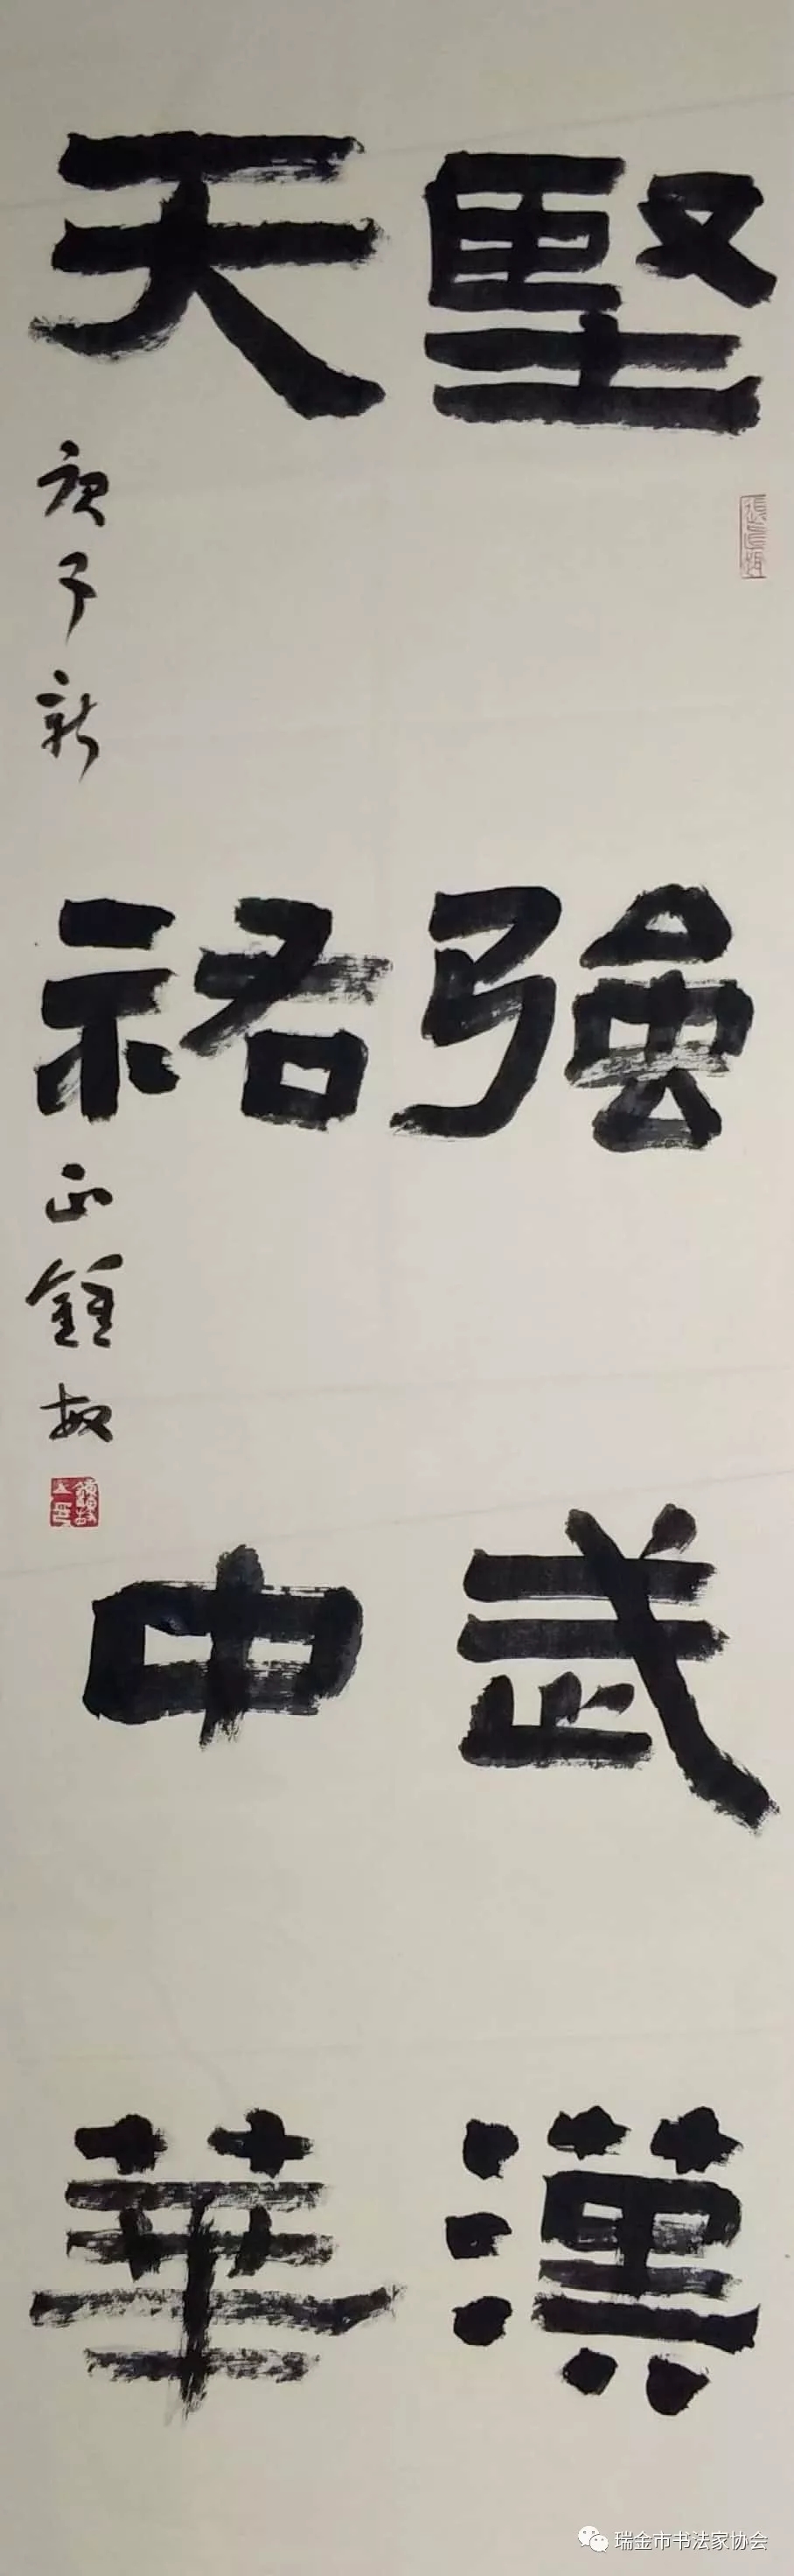 堅強武漢
天祐中華
庚子新正鍾
瑞金市书法家协会